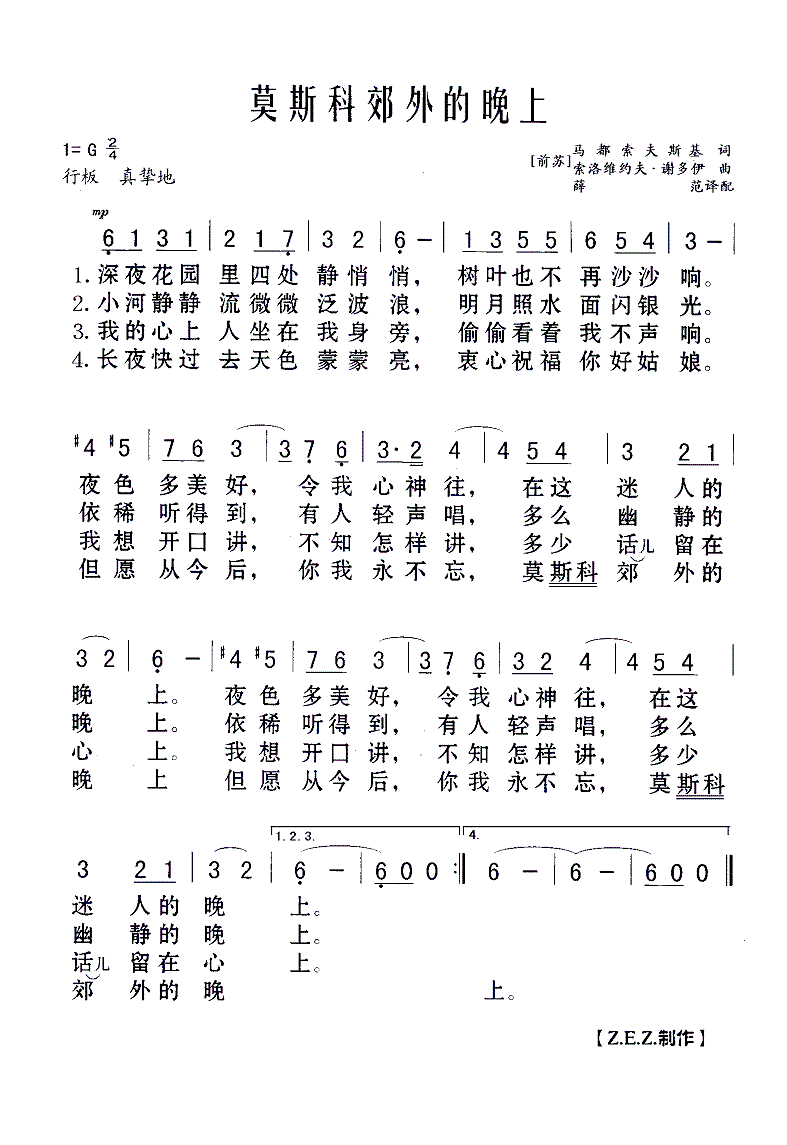 莫斯科郊外的晚上
1= G 2/4
[前苏] 马都索夫斯基 词
索洛维约夫·谢多伊 曲
薛范译配
行板 真挚地
mp
6 1 3 1 | 2 1 7 | 3 2 | 6 - | 1 3 5 5 | 6 5 4 | 3 - |
1.深夜花园 里四处 静悄悄， 树叶也不 再沙沙 响。
2.小河静静 流微微 泛波浪， 明月照水 面闪银 光。
3.我的心上 人坐在 我身旁， 偷偷看着 我不声 响。
4.长夜快过 去天色 蒙蒙亮， 衷心祝福 你好姑 娘。
#4 #5 | 7 6 3 | 3 7 6 | 3·2 4 | 4 5 4 | 3 2 1 |
夜色 多美好， 令我 心神往， 在这 迷人的
依稀 听得到， 有人 轻声唱， 多么 幽静的
我想 开口讲， 不知 怎样讲， 多少 话儿留在
但愿 从今后， 你我 永不忘， 莫斯科 郊外的
3 2 | 6 - | #4 #5 | 7 6 3 | 3 7 6 | 3 2 4 | 4 5 4 |
晚上。 夜色 多美好， 令我 心神往， 在这
晚上。 依稀 听得到， 有人 轻声唱， 多么
心上。 我想 开口讲， 不知 怎样讲， 多少
晚上 但愿 从今后， 你我 永不忘， 莫斯科
1. 2. 3. 4.
3 2 1 | 3 2 | 6 - | 6 0 0 0 :| 6 - | 6 - | 6 0 0 0 ‖
迷人的晚 上。
幽静的晚 上。
话儿留在心 上。
郊外的晚 上。
【Z.E.Z.制作】